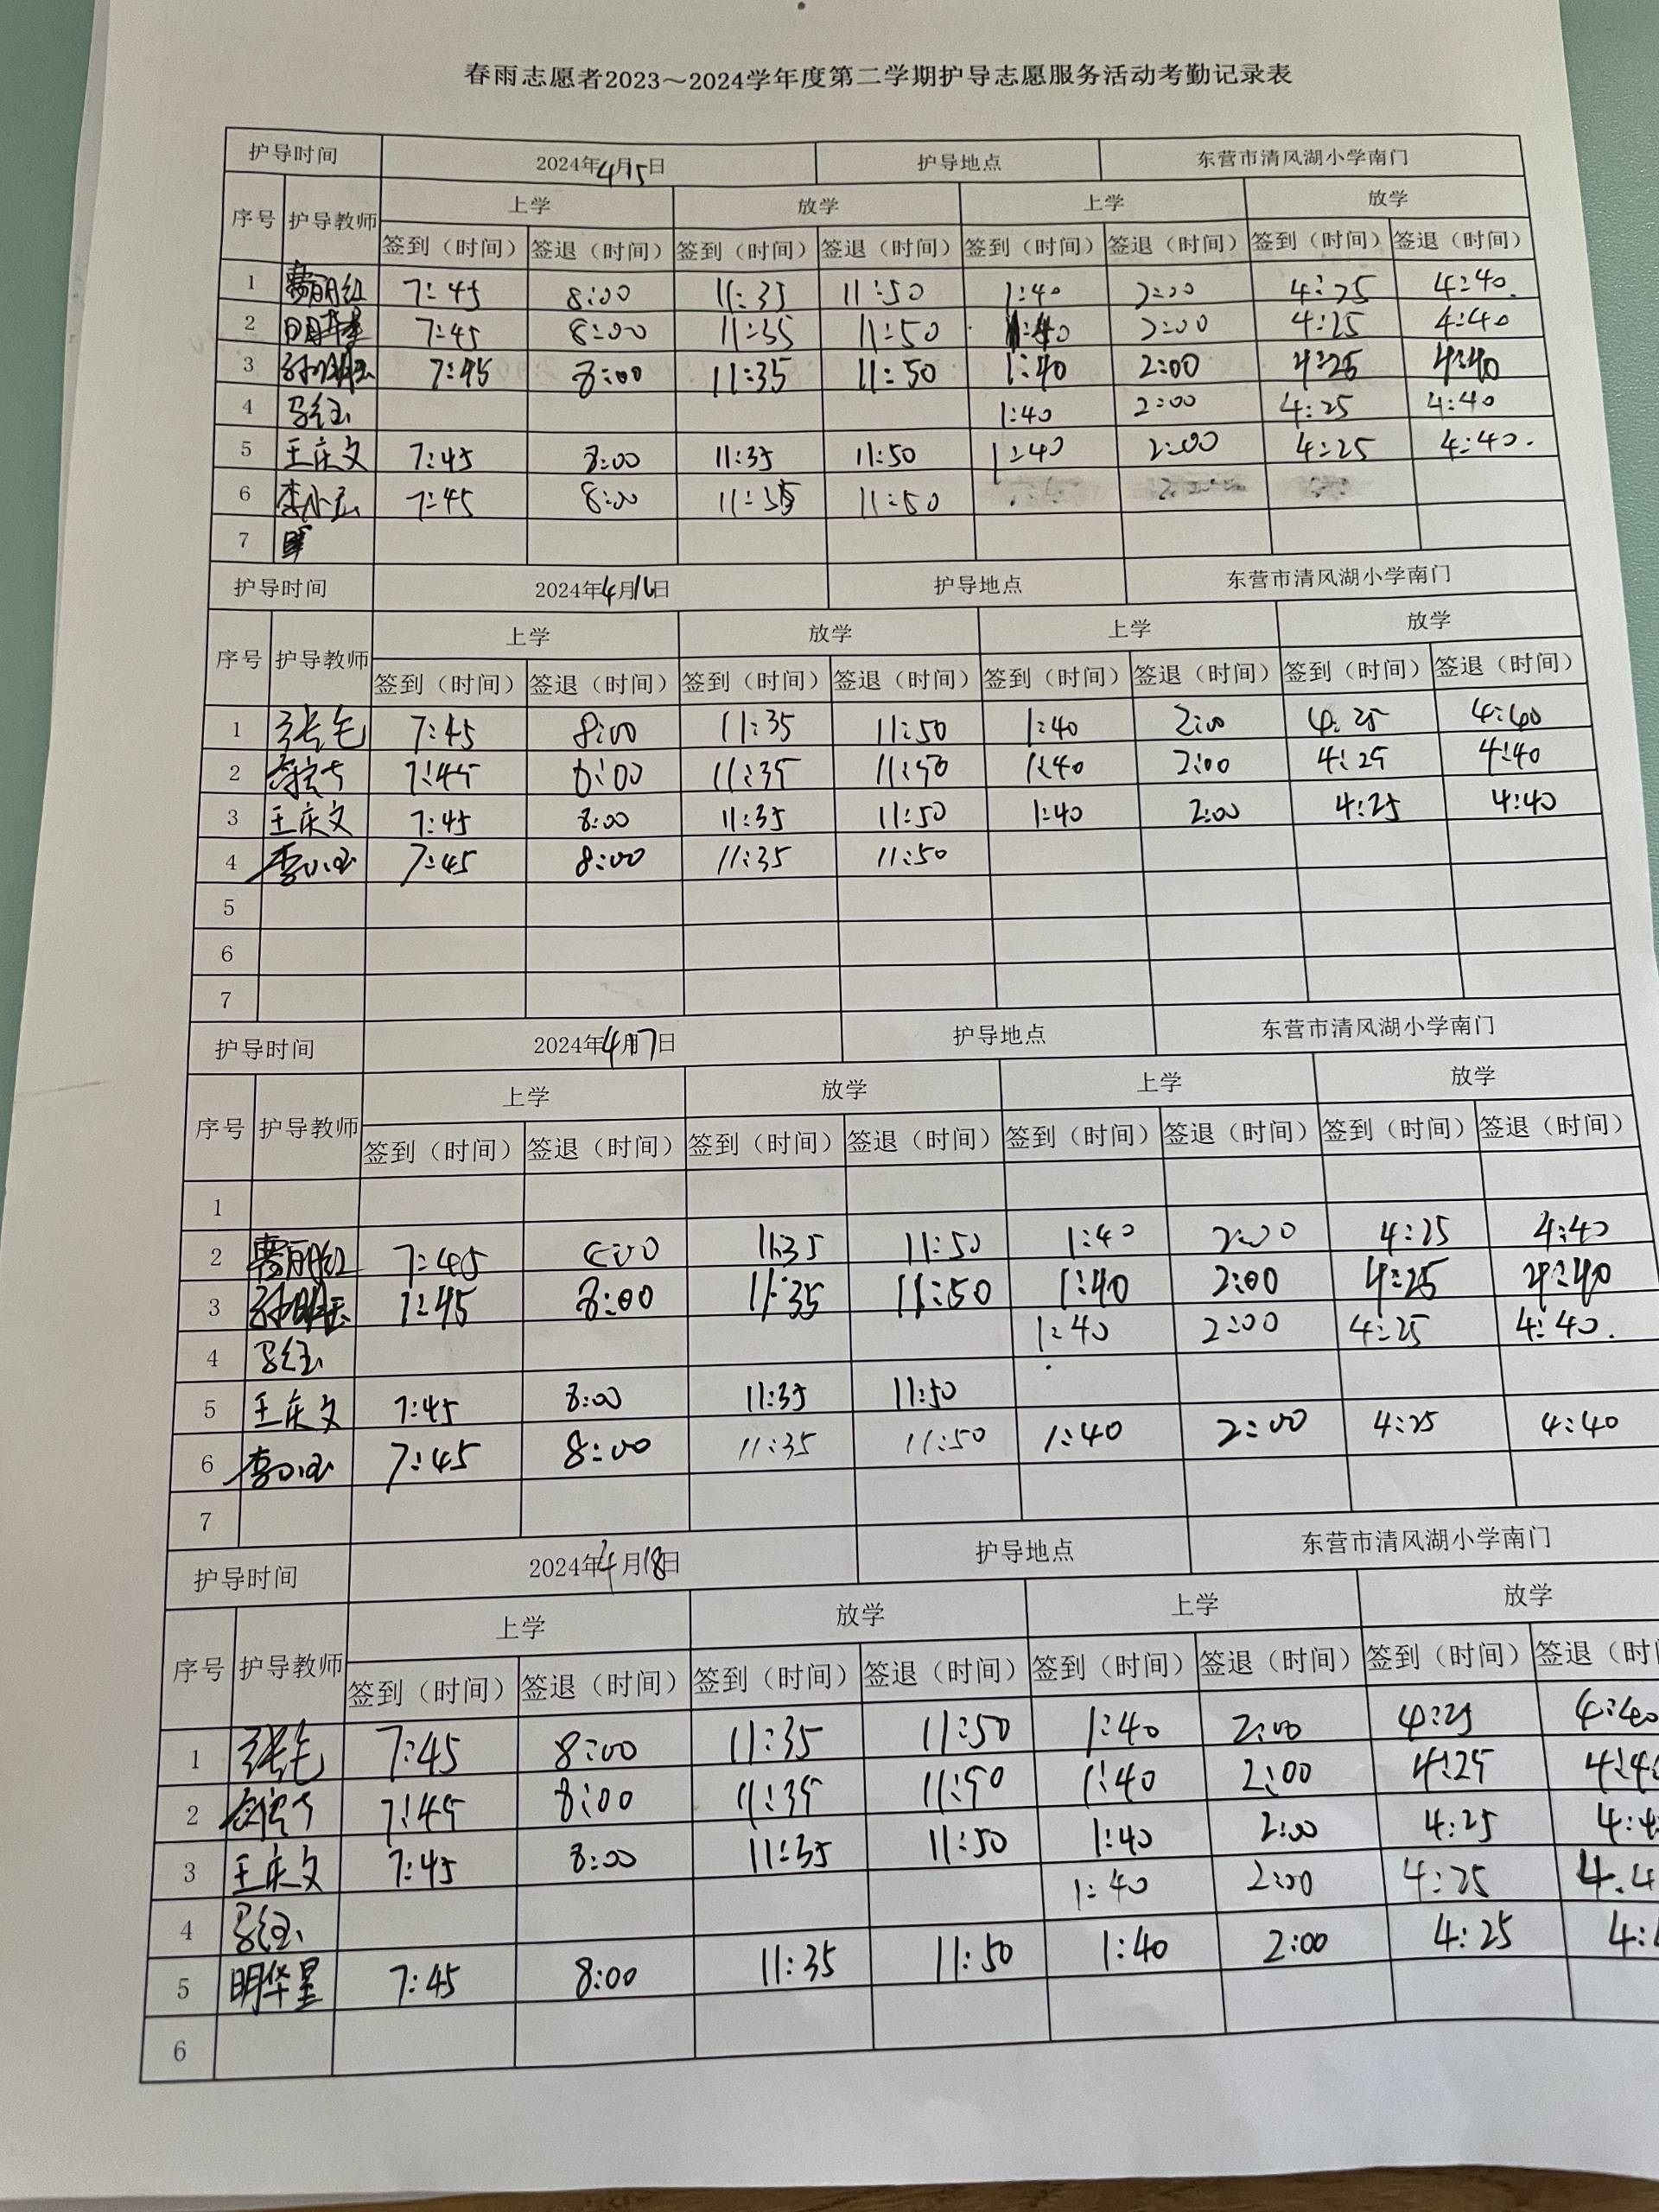 春雨志愿者2023～2024学年度第二学期护导志愿服务活动考勤记录表
护导时间 2024年4月15日 护导地点 东营市清风湖小学南门
序号 护导教师 上学 放学 上学 放学
签到（时间） 签退（时间） 签到（时间） 签退（时间） 签到（时间） 签退（时间） 签到（时间） 签退（时间）
1 7:45 8:00 11:35 11:50 1:40 2:00 4:25 4:40.
2 明华星 7:45 8:00 11:35 11:50 1:40 2:00 4:25 4:40
3 7:45 8:00 11:35 11:50 1:40 2:00 4:25 4:40
4 1:40 2:00 4:25 4:40
5 王庆文 7:45 8:00 11:35 11:50 1:40 2:00 4:25 4:40.
6 李小玉 7:45 8:00 11:35 11:50
7
护导时间 2024年4月16日 护导地点 东营市清风湖小学南门
序号 护导教师 上学 放学 上学 放学
签到（时间） 签退（时间） 签到（时间） 签退（时间） 签到（时间） 签退（时间） 签到（时间） 签退（时间）
1 7:45 8:00 11:35 11:50 1:40 2:00 4:25 4:40
2 7:45 8:00 11:35 11:50 1:40 2:00 4:25 4:40
3 王庆文 7:45 8:00 11:35 11:50 1:40 2:00 4:25 4:40
4 李小玉 7:45 8:00 11:35 11:50
5
6
7
护导时间 2024年4月17日 护导地点 东营市清风湖小学南门
序号 护导教师 上学 放学 上学 放学
签到（时间） 签退（时间） 签到（时间） 签退（时间） 签到（时间） 签退（时间） 签到（时间） 签退（时间）
1
2 7:45 8:00 11:35 11:50 1:40 2:00 4:25 4:40
3 7:45 8:00 11:35 11:50 1:40 2:00 4:25 4:40
4 1:40 2:00 4:25 4:40.
5 王庆文 7:45 8:00 11:35 11:50
6 李小玉 7:45 8:00 11:35 11:50 1:40 2:00 4:25 4:40
7
护导时间 2024年4月18日 护导地点 东营市清风湖小学南门
序号 护导教师 上学 放学 上学 放学
签到（时间） 签退（时间） 签到（时间） 签退（时间） 签到（时间） 签退（时间） 签到（时间） 签退（时
1 7:45 8:00 11:35 11:50 1:40 2:00 4:25 4:40
2 7:45 8:00 11:35 11:50 1:40 2:00 4:25 4:4
3 王庆文 7:45 8:00 11:35 11:50 1:40 2:00 4:25 4:4
4 1:40 2:00 4:25 4.4
5 明华星 7:45 8:00 11:35 11:50 1:40 2:00 4:25 4:
6